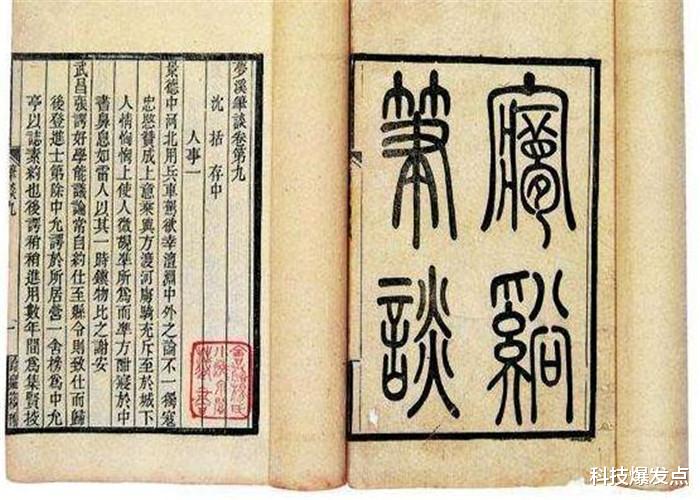 夢谿
筆談
夢溪筆談卷第九
沈括存中
人事一
景德中河北用兵車駕欲幸澶淵中外之論不一獨寇
忠愍贊成上意乘輿方渡河虜騎充斥至於城下
人情恟恟上使人微覘準所爲而準方酣寢於中
書鼻息如雷人以其一時鎮物比之謝安
武昌張諤好學能議論常自約仕至縣令則致仕而歸
後登進士第除中允諤於所居營一舍榜爲中允
亭以誌素約也後諤稍稍進用數年間爲集賢挍
筆談九
一
科技爆发点